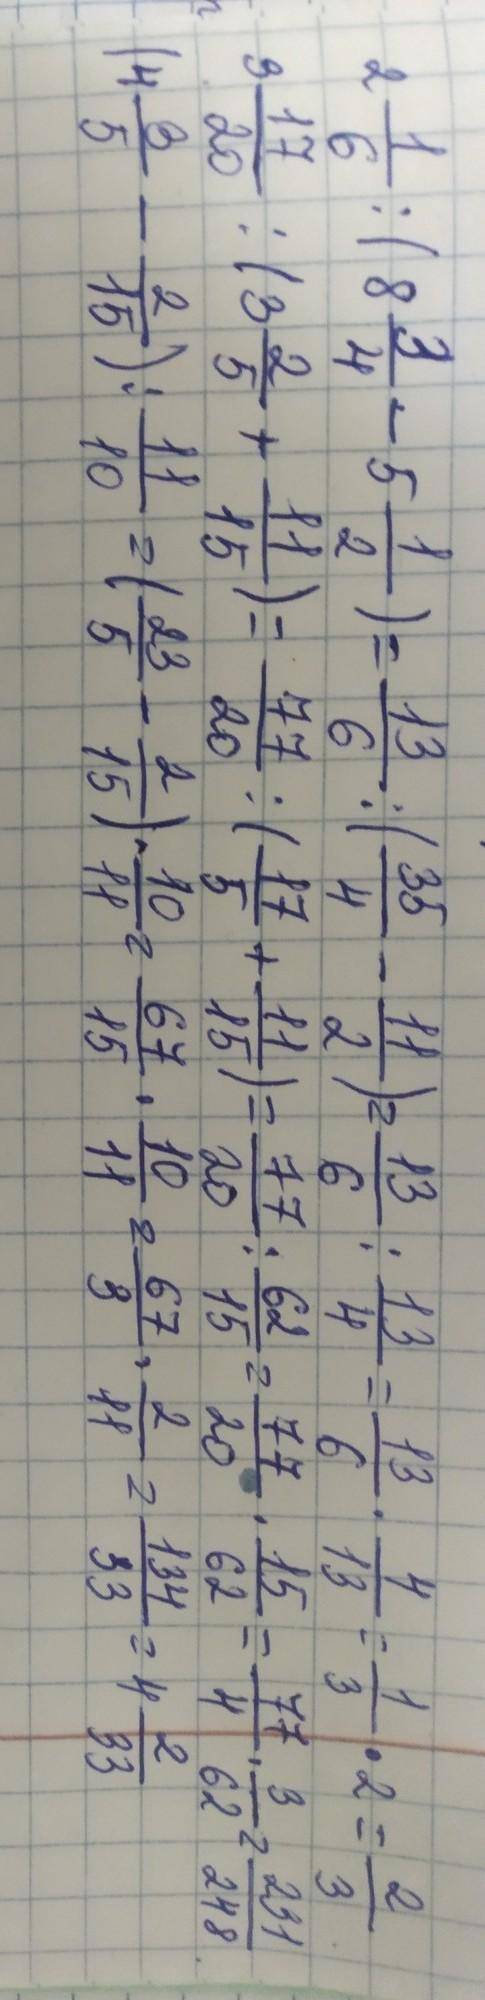 2 1/6 : (8 3/4 - 5 1/2) = 13/6 : (35/4 - 11/2) = 13/6 : 13/4 = 13/6 · 4/13 = 1/3 · 2 = 2/3
3 17/20 : (3 2/5 + 11/15) = 77/20 : (17/5 + 11/15) = 77/20 : 62/15 = 77/20 · 15/62 = 77/4 · 3/62 = 231/248
(4 3/5 - 2/15) : 11/10 = (23/5 - 2/15) · 10/11 = 67/15 · 10/11 = 67/3 · 2/11 = 134/33 = 4 2/33